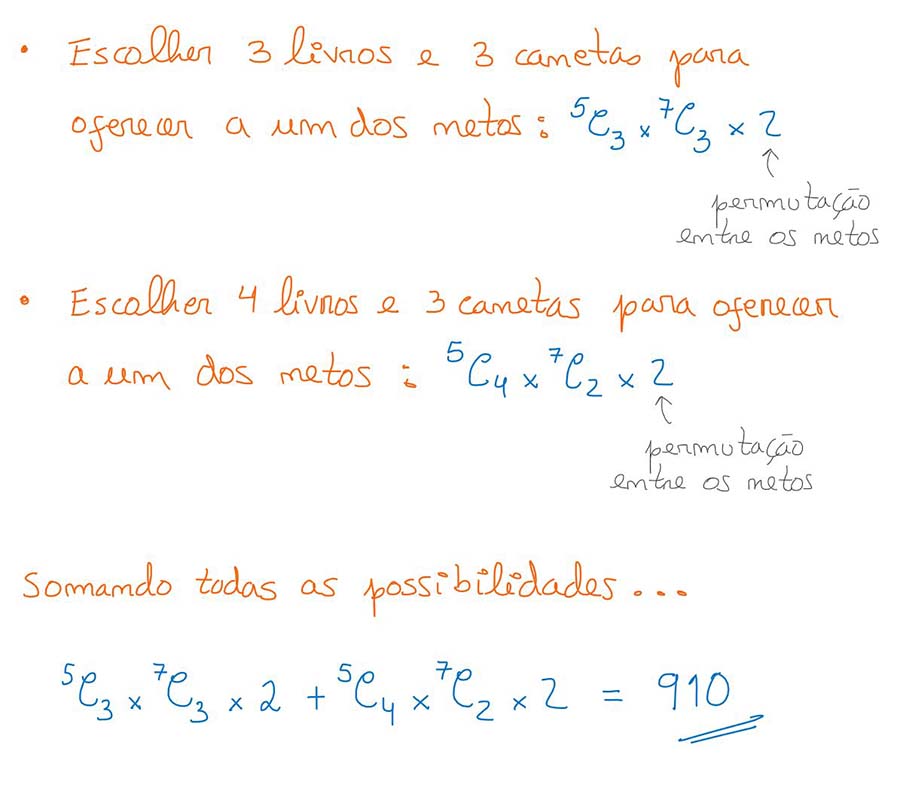 • Escolher 3 livros e 3 canetas para
oferecer a um dos netos : ⁵C₃ × ⁷C₃ × 2
↑
permutação
entre os netos
• Escolher 4 livros e 3 canetas para oferecer
a um dos netos : ⁵C₄ × ⁷C₂ × 2
↑
permutação
entre os netos
Somando todas as possibilidades...
⁵C₃ × ⁷C₃ × 2 + ⁵C₄ × ⁷C₂ × 2 = 910